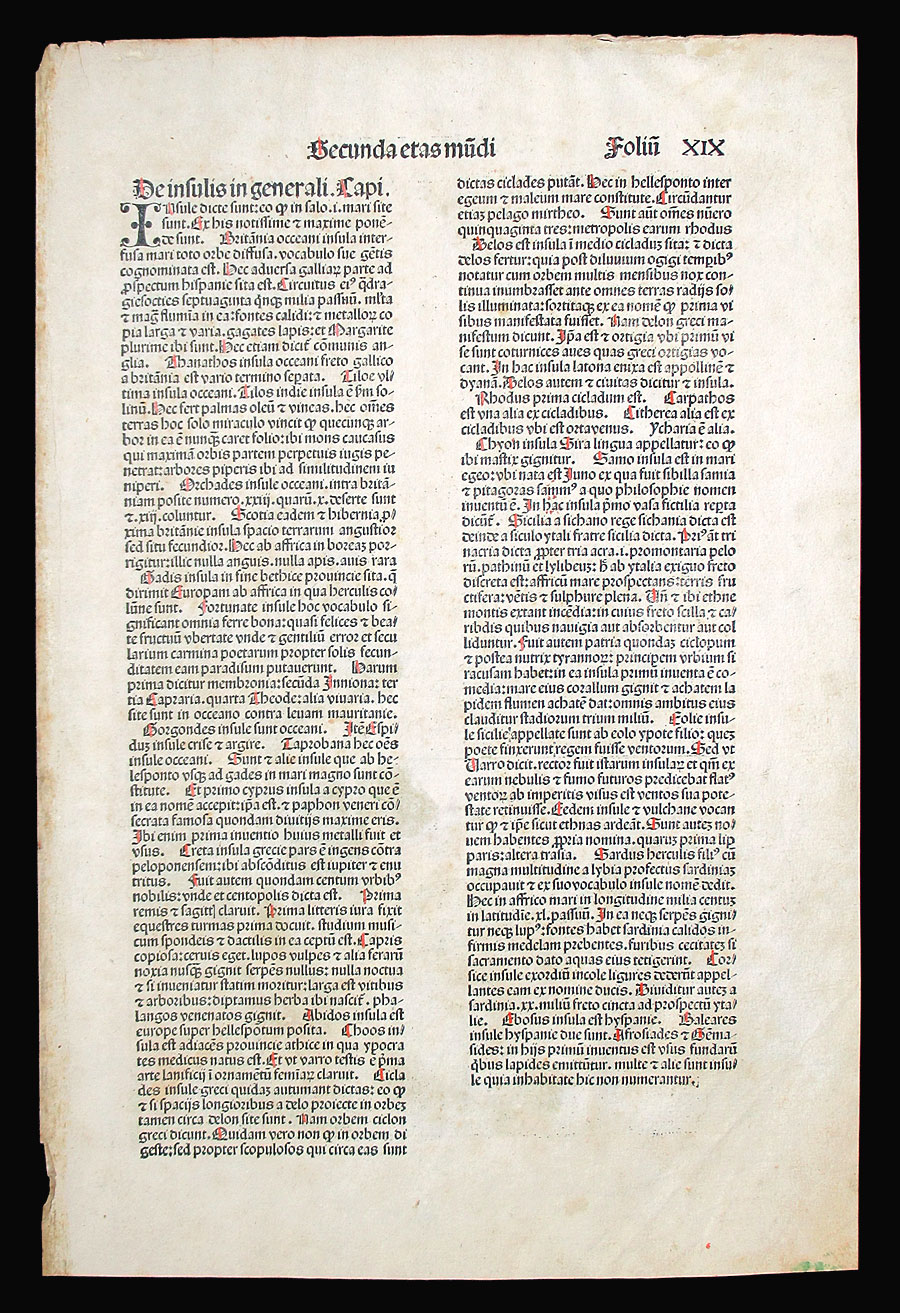 Secunda etas mūdi
Foliū XIX
De insulis in generali. Capi.
INsule dicte sunt: eo ꝙ in salo .i. mari site
sunt. Ex his notissime ⁊ maxime ponē-
de sunt. Britānia occeani insula inter-
fusa mari toto orbe diffusa. vocabulo sue gētis
cognominata est. Hec aduersa galliaꝝ parte ad
ꝓspectum hispanie sita est. Circuitus eiꝰ q̄dra-
giesocties septuaginta q̄nqꝫ milia passuū. ml̄ta
⁊ maḡ flumīa in ea: fontes calidi: ⁊ metalloꝝ co
pia larga ⁊ varia. gagates lapis: et Margarite
plurime ibi sunt. Hec etiam dicit̄ cōmunis an-
glia. Thanathos insula occeani freto gallico
a britānia est vario termino seꝑata. Tiloe vl/
tima insula occeani. Tilos indie insula ē ꝑm so-
linū. Hec fert palmas oleū ⁊ vineas. hec om̄es
terras hoc solo miraculo vincit ꝙ quecūqꝫ ar-
bor in ea ē nunqꝫ caret folio: ibi mons caucasus
qui maximā orbis partem perpetuis iugis pe-
netrat: arbores piperis ibi ad similitudinem iu
niperi. Orchades insule occeani. intra britā-
niam posite numero .xxiij. quarū .x. deserte sunt
⁊ .xiij. coluntur. Scotia eadem ⁊ hibernia ꝓ/
xima britānie insula spacio terrarum angustior
sed situ fecundior. Hec ab affrica in boreaꝫ por-
rigitur: illic nulla anguis. nulla apis. auis rara
Gadis insula in fine bethice prouincie sita. q̄
dirimit Europam ab affrica in qua herculis co/
lūne sunt. Fortunate insule hoc vocabulo si-
gnificant omnia ferre bona: quasi felices ⁊ bea/
te fructuū vbertate vnde ⁊ gentiliū error et secu
larium carmina poetarum propter solis fecun-
ditatem eam paradisum putauerunt. Harum
prima dicitur membronia: secūda Innionia: ter
tia Capraria. quarta Theode: alia viuaria. hec
site sunt in occeano contra leuam mauritanie.
Gorgondes insule sunt occeani. Itē Espi/
duꝫ insule crise ⁊ argire. Taprobana hec oēs
insule occeani. Sunt ⁊ alie insule que ab he-
lesponto vsqꝫ ad gades in mari magno sunt cō-
stitute. Et primo cyprus insula a cypro que ē
in ea nomē accepit: ip̄a est. ⁊ paphon veneri cō/
secrata famosa quondam diuitijs maxime eris.
Ibi enim prima inuentio huius metalli fuit et
vsus. Creta insula grecie pars ē ingens cōtra
peloponensem: ibi abscōditus est iupiter ⁊ enu
tritus. Fuit autem quondam centum vrbibꝰ
nobilis: vnde et centopolis dicta est. Prima
remis ⁊ sagitt̄ claruit. Prima litteris iura fixit
equestres turmas prima docuit. studium musi-
cum spondeis ⁊ dactilis in ea ceptū est. Capris
copiosa: ceruis eget. lupos vulpes ⁊ alia ferarū
noxia nusqꝫ gignit serpēs nullus: nulla noctua
⁊ si inueniatur statim moritur: larga est vitibus
⁊ arboribus: diptamus herba ibi nascit̄. pha-
langos venenatos gignit. Abidos insula est
europe super hellespōtum posita. Choos in/
sula est adiacēs prouincie athice in qua ypocra
tes medicus natus est. Et vt varro testis ē p̄ma
arte lanificij ī ornamētū femīaꝝ claruit. Cicla
des insule greci quidaꝫ autumant dictas: eo ꝙ
⁊ si spacijs longioribus a delo proiecte in orbeꝫ
tamen circa delon site sunt. Nam orbem ciclon
greci dicunt. Quidam vero non ꝙ in orbem di
geste: sed propter scopulosos qui circa eas sunt
dictas ciclades putāt. Hec in hellesponto inter
egeum ⁊ maleum mare constitute. Circūdantur
etiaꝫ pelago mirtheo. Sunt aūt om̄es nūero
quinquaginta tres: metropolis earum rhodus
Delos est insula ī medio cicladuꝫ sita: ⁊ dicta
delos fertur: quia post diluuium ogigi temꝑibꝰ
notatur cum orbem multis mensibus nox con-
tinua inumbrasset ante omnes terras radijs so/
lis illuminata: sortitaqꝫ ex ea nomē ꝙ prima vi
sibus manifestata fuisset. Nam delon greci ma-
nifestum dicunt. Ip̄a est ⁊ ortigia vbi primū vi
se sunt coturnices aues quas greci ortigias vo-
cant. In hac insula latona enixa est appollinē ⁊
dyanā. Delos autem ⁊ ciuitas dicitur ⁊ insula.
Rhodus prima cicladum est. Carpathos
est vna alia ex cicladibus. Citherea alia est ex
cicladibus vbi est ortavenus. Ycharia ē alia.
Chyon insula Sira lingua appellatur: eo ꝙ
ibi mastix gignitur. Samo insula est in mari
egeo: vbi nata est Juno ex qua fuit sibilla samia
⁊ pitagoras samiꝰ a quo philosophie nomen
inuentū ē. In hac insula pͥmo vasa fictilia reꝑta
dicūt̄. Sicilia a sichano rege sichania dicta est
deinde a siculo ytali fratre sicilia dicta. Priꝰ āt tri
nacria dicta ꝓpter tria acra .i. promontaria pelo
rū. pathinū et lylibeuꝫ: hꝫ ab ytalia exiguo freto
discreta est: affricū mare prospectans: terris fru
ctifera: vētis ⁊ sulphure plena. Un̄ ⁊ ibi ethne
montis extant incēdia: in cuius freto scilla ⁊ ca/
ribdis quibus nauigia aut absorbentur aut col
liduntur. Fuit autem patria quondaꝫ ciclopum
⁊ postea nutrix tyrannoꝝ: principem vrbium si
racusam habet: in ea insula primū inuenta ē co-
media: mare eius corallum gignit ⁊ achatem la
pidem flumen achatē dat: omnis ambitus eius
clauditur stadiorum trium miliū. Eolie insu-
le sicilie appellate sunt ab eolo ypote filio: queꝫ
poete finxerunt regem fuisse ventorum. Sed vt
Varro dicit. rector fuit istarum insulaꝝ et qm̄ ex
earum nebulis ⁊ fumo futuros predicebat flatꝰ
ventoꝝ ab imperitis visus est ventos sua pote-
state retinuisse. Eedem insule ⁊ vulchane vocan
tur ꝙ ⁊ ip̄e sicut ethnas ardeāt. Sunt auteꝫ no/
uem habentes ꝓpria nomina. quaruꝫ prima liꝑ
paris: altera trasia. Sardus herculis filiꝰ cū
magna multitudine a lybia profectus sardiniaꝫ
occupauit ⁊ ex suo vocabulo insule nomē dedit.
Hec in affrico mari in longitudine milia centuꝫ
in latitudīe .xl. passuū. In ea neqꝫ serpēs gigni/
tur neqꝫ lupꝰ: fontes habet sardinia calidos in-
firmis medelam prebentes. furibus cecitateꝫ si
sacramento dato aquas eius tetigerint. Cor/
sice insule exordiū incole ligures dederūt appel-
lantes eam ex nomine ducis. Diuiditur auteꝫ a
sardinia .xx. miliū freto cincta ad prospectū yta/
lie. Ebosus insula est hyspanie. Baleares
insule hyspanie due sunt. Afrosiades ⁊ Gēma-
sides: in hijs primū inuentus est vsus fundarū
q̄bus lapides emittūtur. multe ⁊ alie sunt insu/
le quia inhabitate hic non numerantur.